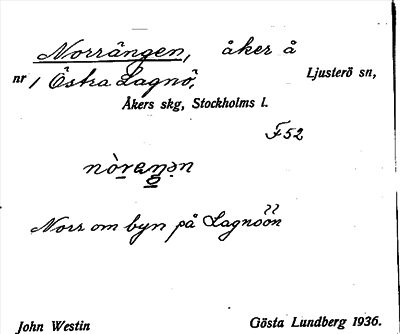 Norrängen, åker å
nr 1 Östra Lagnö, Ljusterö sn,
Åkers skg, Stockholms l.
F52
Norr om byn på Lagnöön
John Westin Gösta Lundberg 1936.